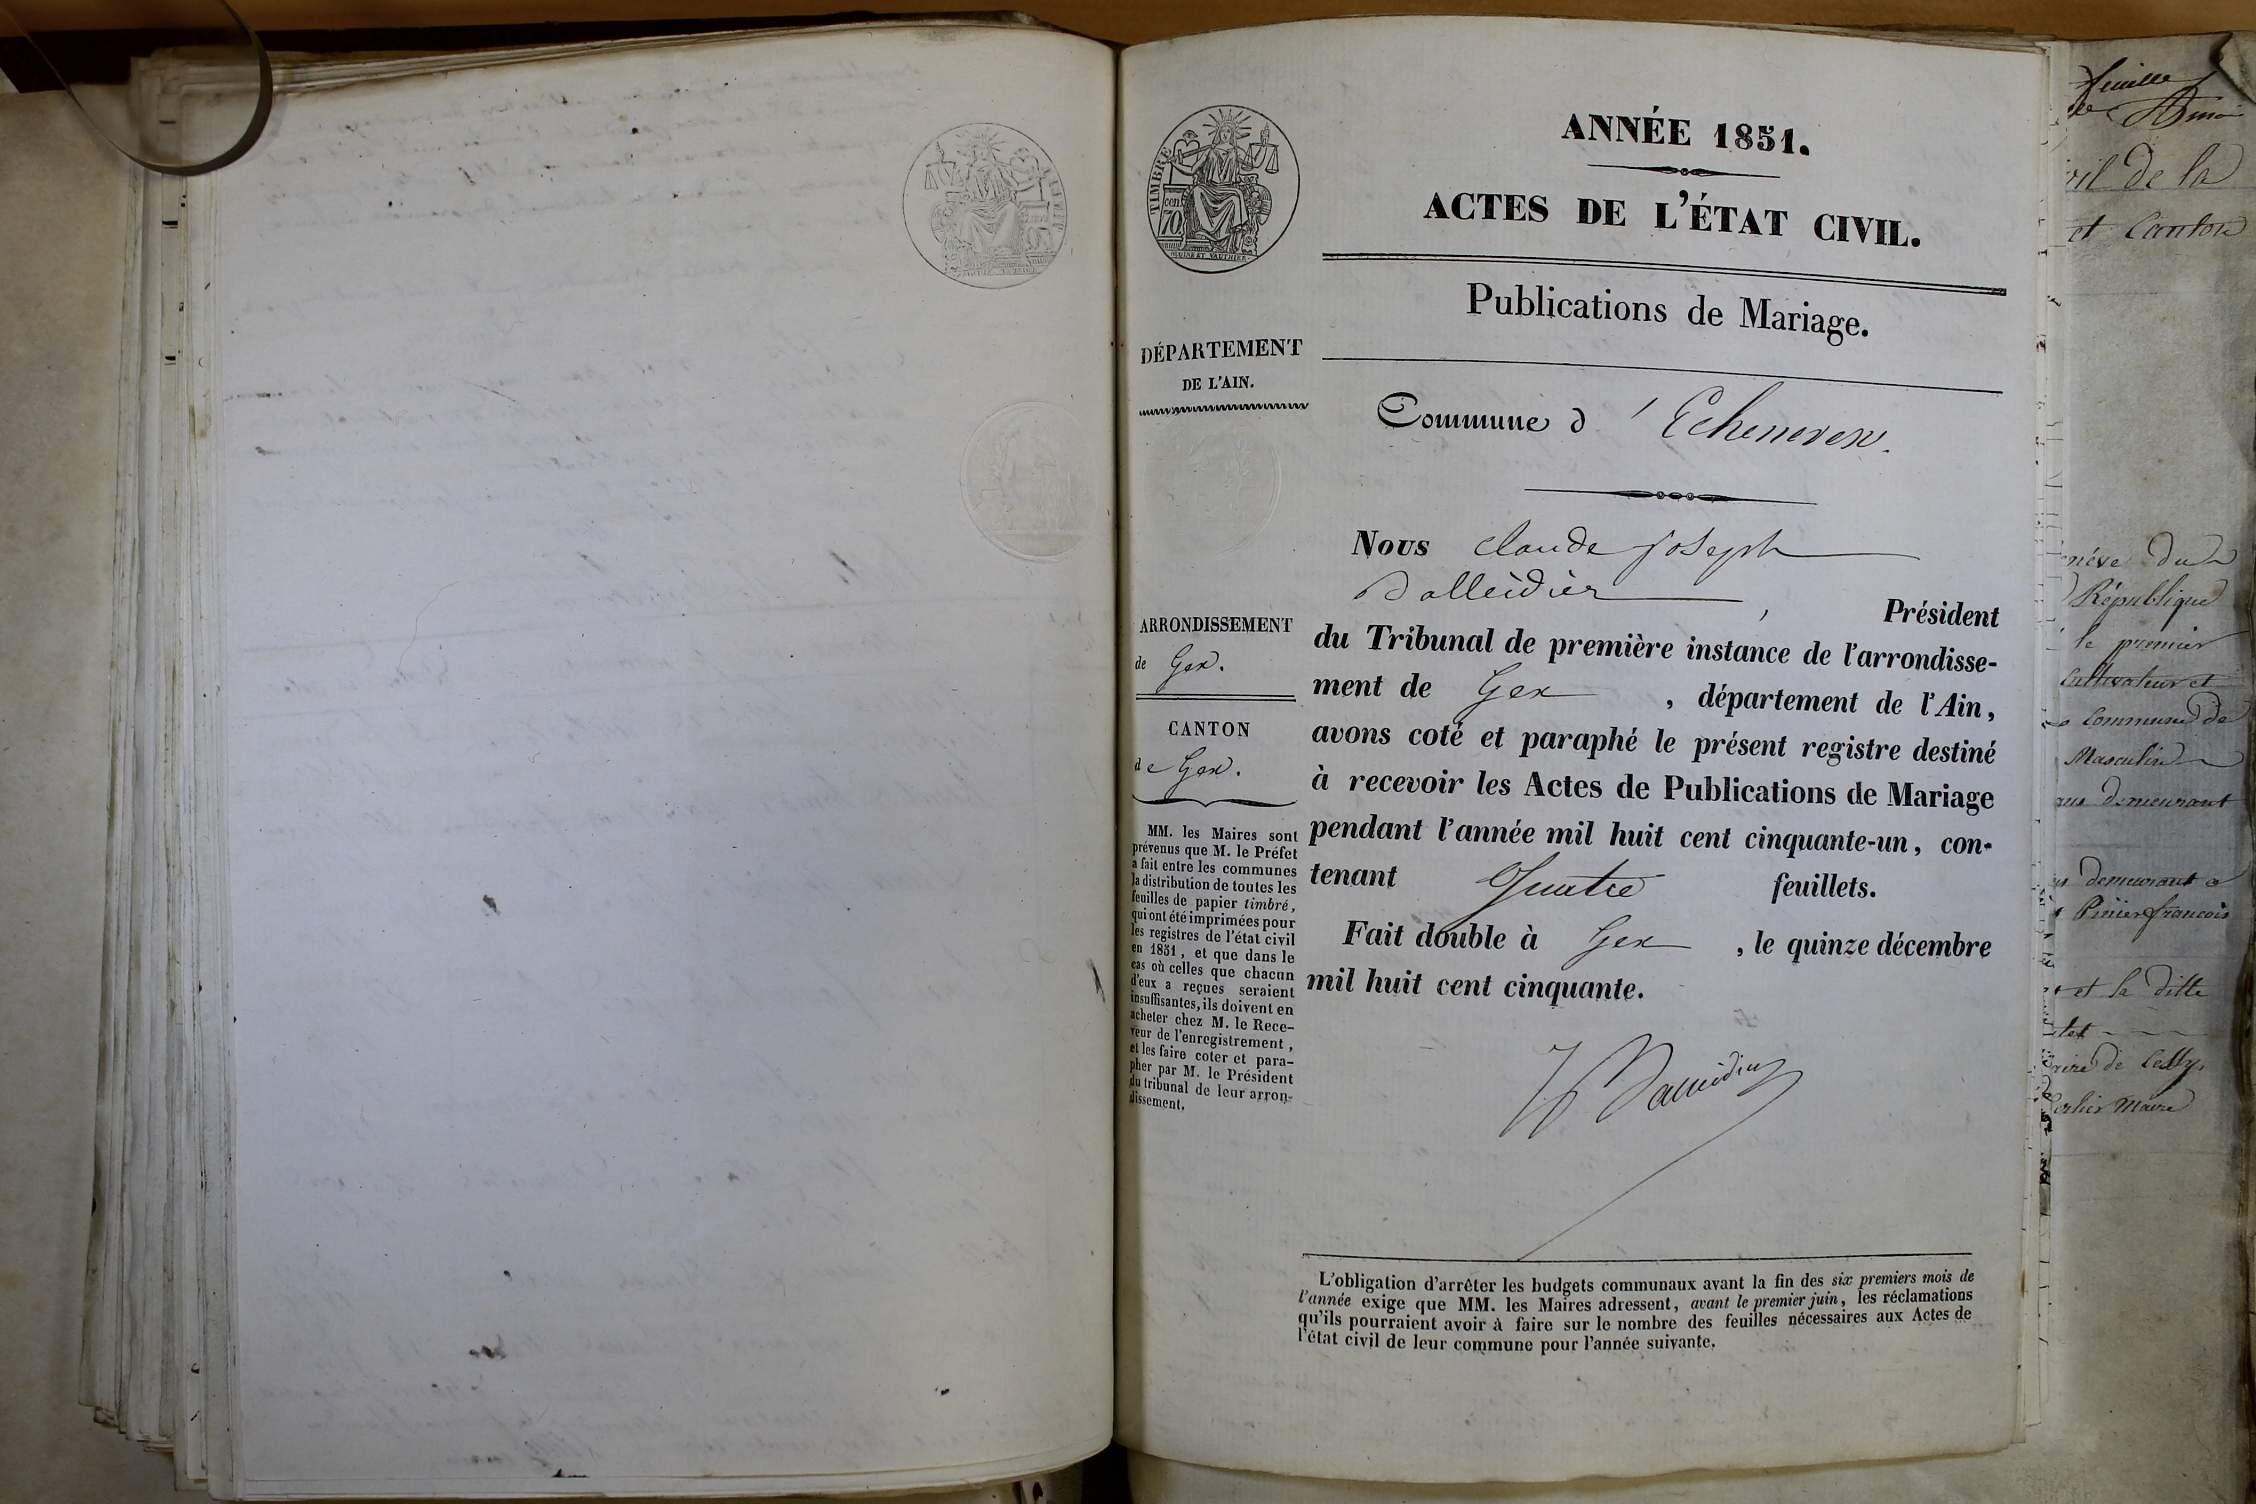 TIMBRE
cen. 70.
ANNÉE 1851.
ACTES DE L'ÉTAT CIVIL.
Publications de Mariage.
Commune d'Echenevex.
DÉPARTEMENT
DE L'AIN.
ARRONDISSEMENT
de Gex.
CANTON
de Gex.
MM. les Maires sont
prévenus que M. le Préfet
a fait entre les communes
la distribution de toutes les
feuilles de papier timbré,
qui ont été imprimées pour
les registres de l'état civil
en 1851, et que dans le
cas où celles que chacun
d'eux a reçues seraient
insuffisantes, ils doivent en
acheter chez M. le Rece-
veur de l'enregistrement,
et les faire coter et para-
pher par M. le Président
du tribunal de leur arron-
dissement.
Nous Claude Joseph
Dalleidier, Président
du Tribunal de première instance de l'arrondisse-
ment de Gex, département de l'Ain,
avons coté et paraphé le présent registre destiné
à recevoir les Actes de Publications de Mariage
pendant l'année mil huit cent cinquante-un, con-
tenant Quatre feuillets.
Fait double à Gex, le quinze décembre
mil huit cent cinquante.
L'obligation d'arrêter les budgets communaux avant la fin des six premiers mois de
l'année exige que MM. les Maires adressent, avant le premier juin, les réclamations
qu'ils pourraient avoir à faire sur le nombre des feuilles nécessaires aux Actes de
l'état civil de leur commune pour l'année suivante.
feuille
de la
et Canton
du
République
le premier
Cultivateur et
Commune de
Masculin
demeurant
demeurant a
francois
et la ditte
de Cessy
Maire